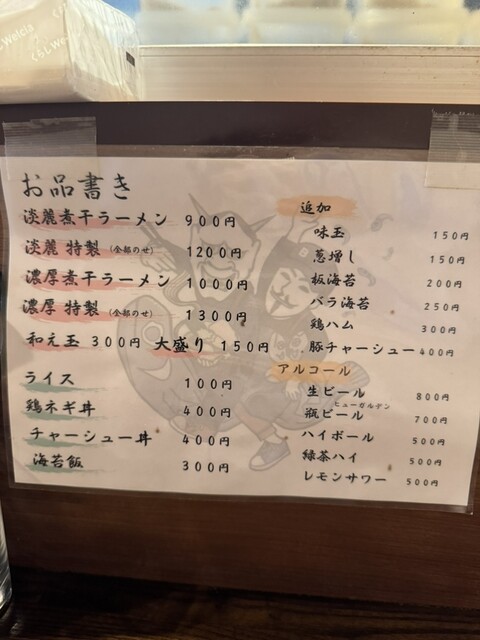 くらしWelcia
お品書き
淡麗煮干ラーメン 900円
淡麗 特製 (全部のせ) 1200円
濃厚煮干ラーメン 1000円
濃厚 特製 (全部のせ) 1300円
和え玉 300円 大盛り 150円
ライス 100円
鶏ネギ丼 400円
チャーシュー丼 400円
海苔飯 300円
追加
味玉 150円
葱増し 150円
板海苔 200円
バラ海苔 250円
鶏ハム 300円
豚チャーシュー 400円
アルコール
生ビール 800円
ヒューガルデン
瓶ビール 700円
ハイボール 500円
緑茶ハイ 500円
レモンサワー 500円